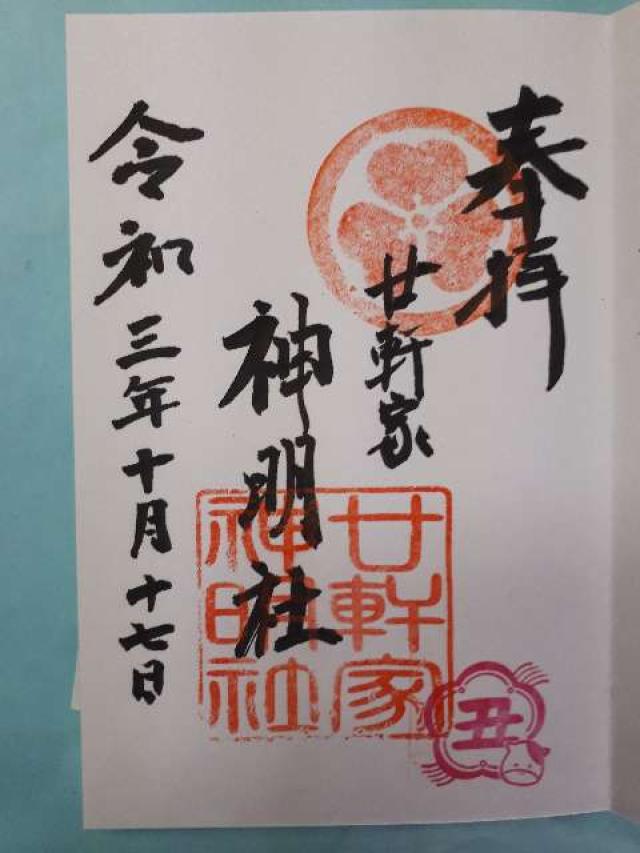 奉拝
廿軒家
神明社
令和三年十月十七日
廿軒家
神明社
丑